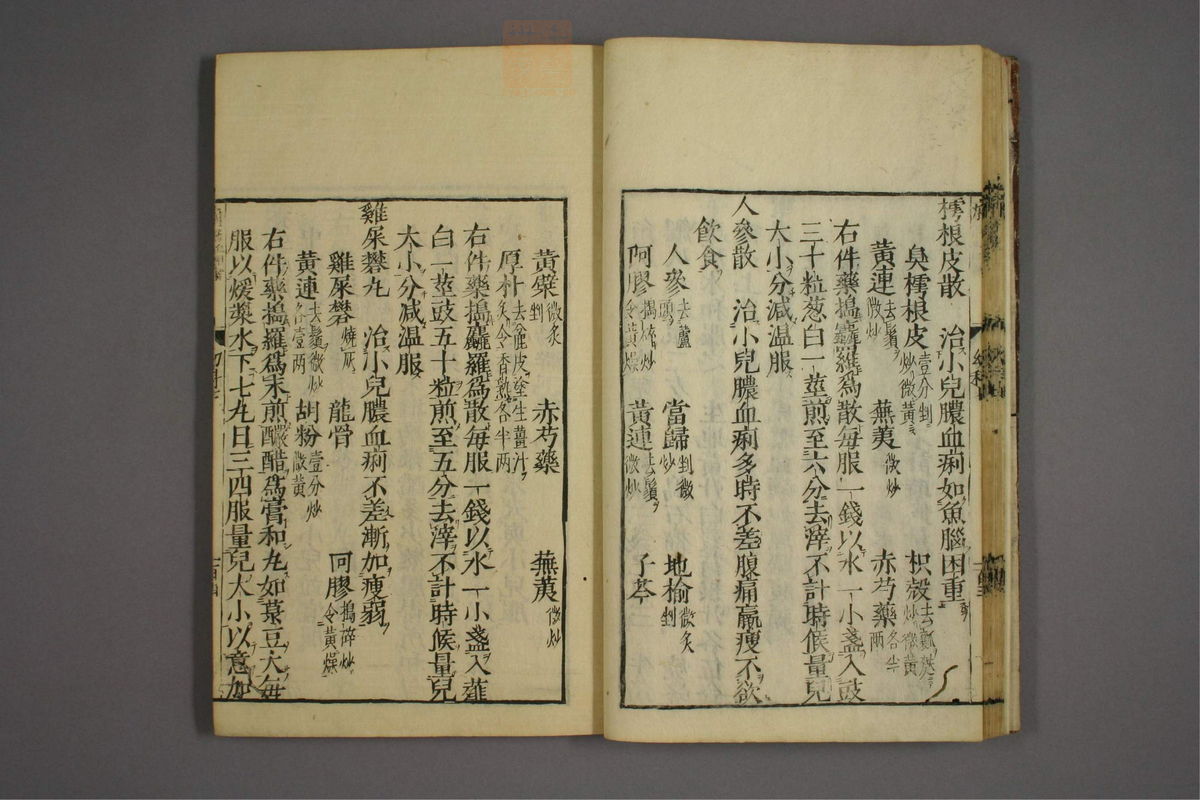 樗根皮散　治小兒膿血痢如魚腦困重
臭樗根皮壹分剉炒微黃　枳殼去瓤麸炒微黃
黃連去鬚微炒　蕪荑微炒　赤芍藥各半兩
右件藥搗麤羅爲散每服一錢以水一小盞入豉
三十粒葱白一莖煎至六分去滓不計時候量兒
大小分減温服
人參散　治小兒膿血痢多時不差腹痛羸瘦不欲
飲食
人參去蘆頭　當歸剉微炒　地榆微炙剉
阿膠搗炒令黃燥　黃連去鬚微炒　子芩
黃蘗微炙剉　赤芍藥　蕪荑微炒
厚朴去麄皮塗生薑汁炙令香熟各半两
右件藥搗麤羅爲散每服一錢以水一小盞入薤
白一莖豉五十粒煎至五分去滓不計時候量兒
大小分減温服
雞屎礬丸　治小兒膿血痢不差漸加瘦弱
雞屎礬燒灰　龍骨　阿膠搗碎炒令黃燥
黃連去鬚微炒各壹两　胡粉壹分炒微黃
右件藥搗羅爲末煎釅醋爲膏和丸如菉豆大每
服以煖漿水下七丸日三四服量兒大小以意加